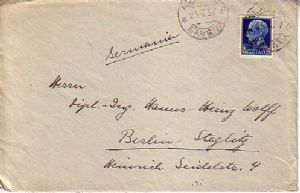 Germania
Herrn
Dipl.-Ing. Hanns-Heinz Wolff
Berlin-Steglitz
Heinrich Seidelstr. 4